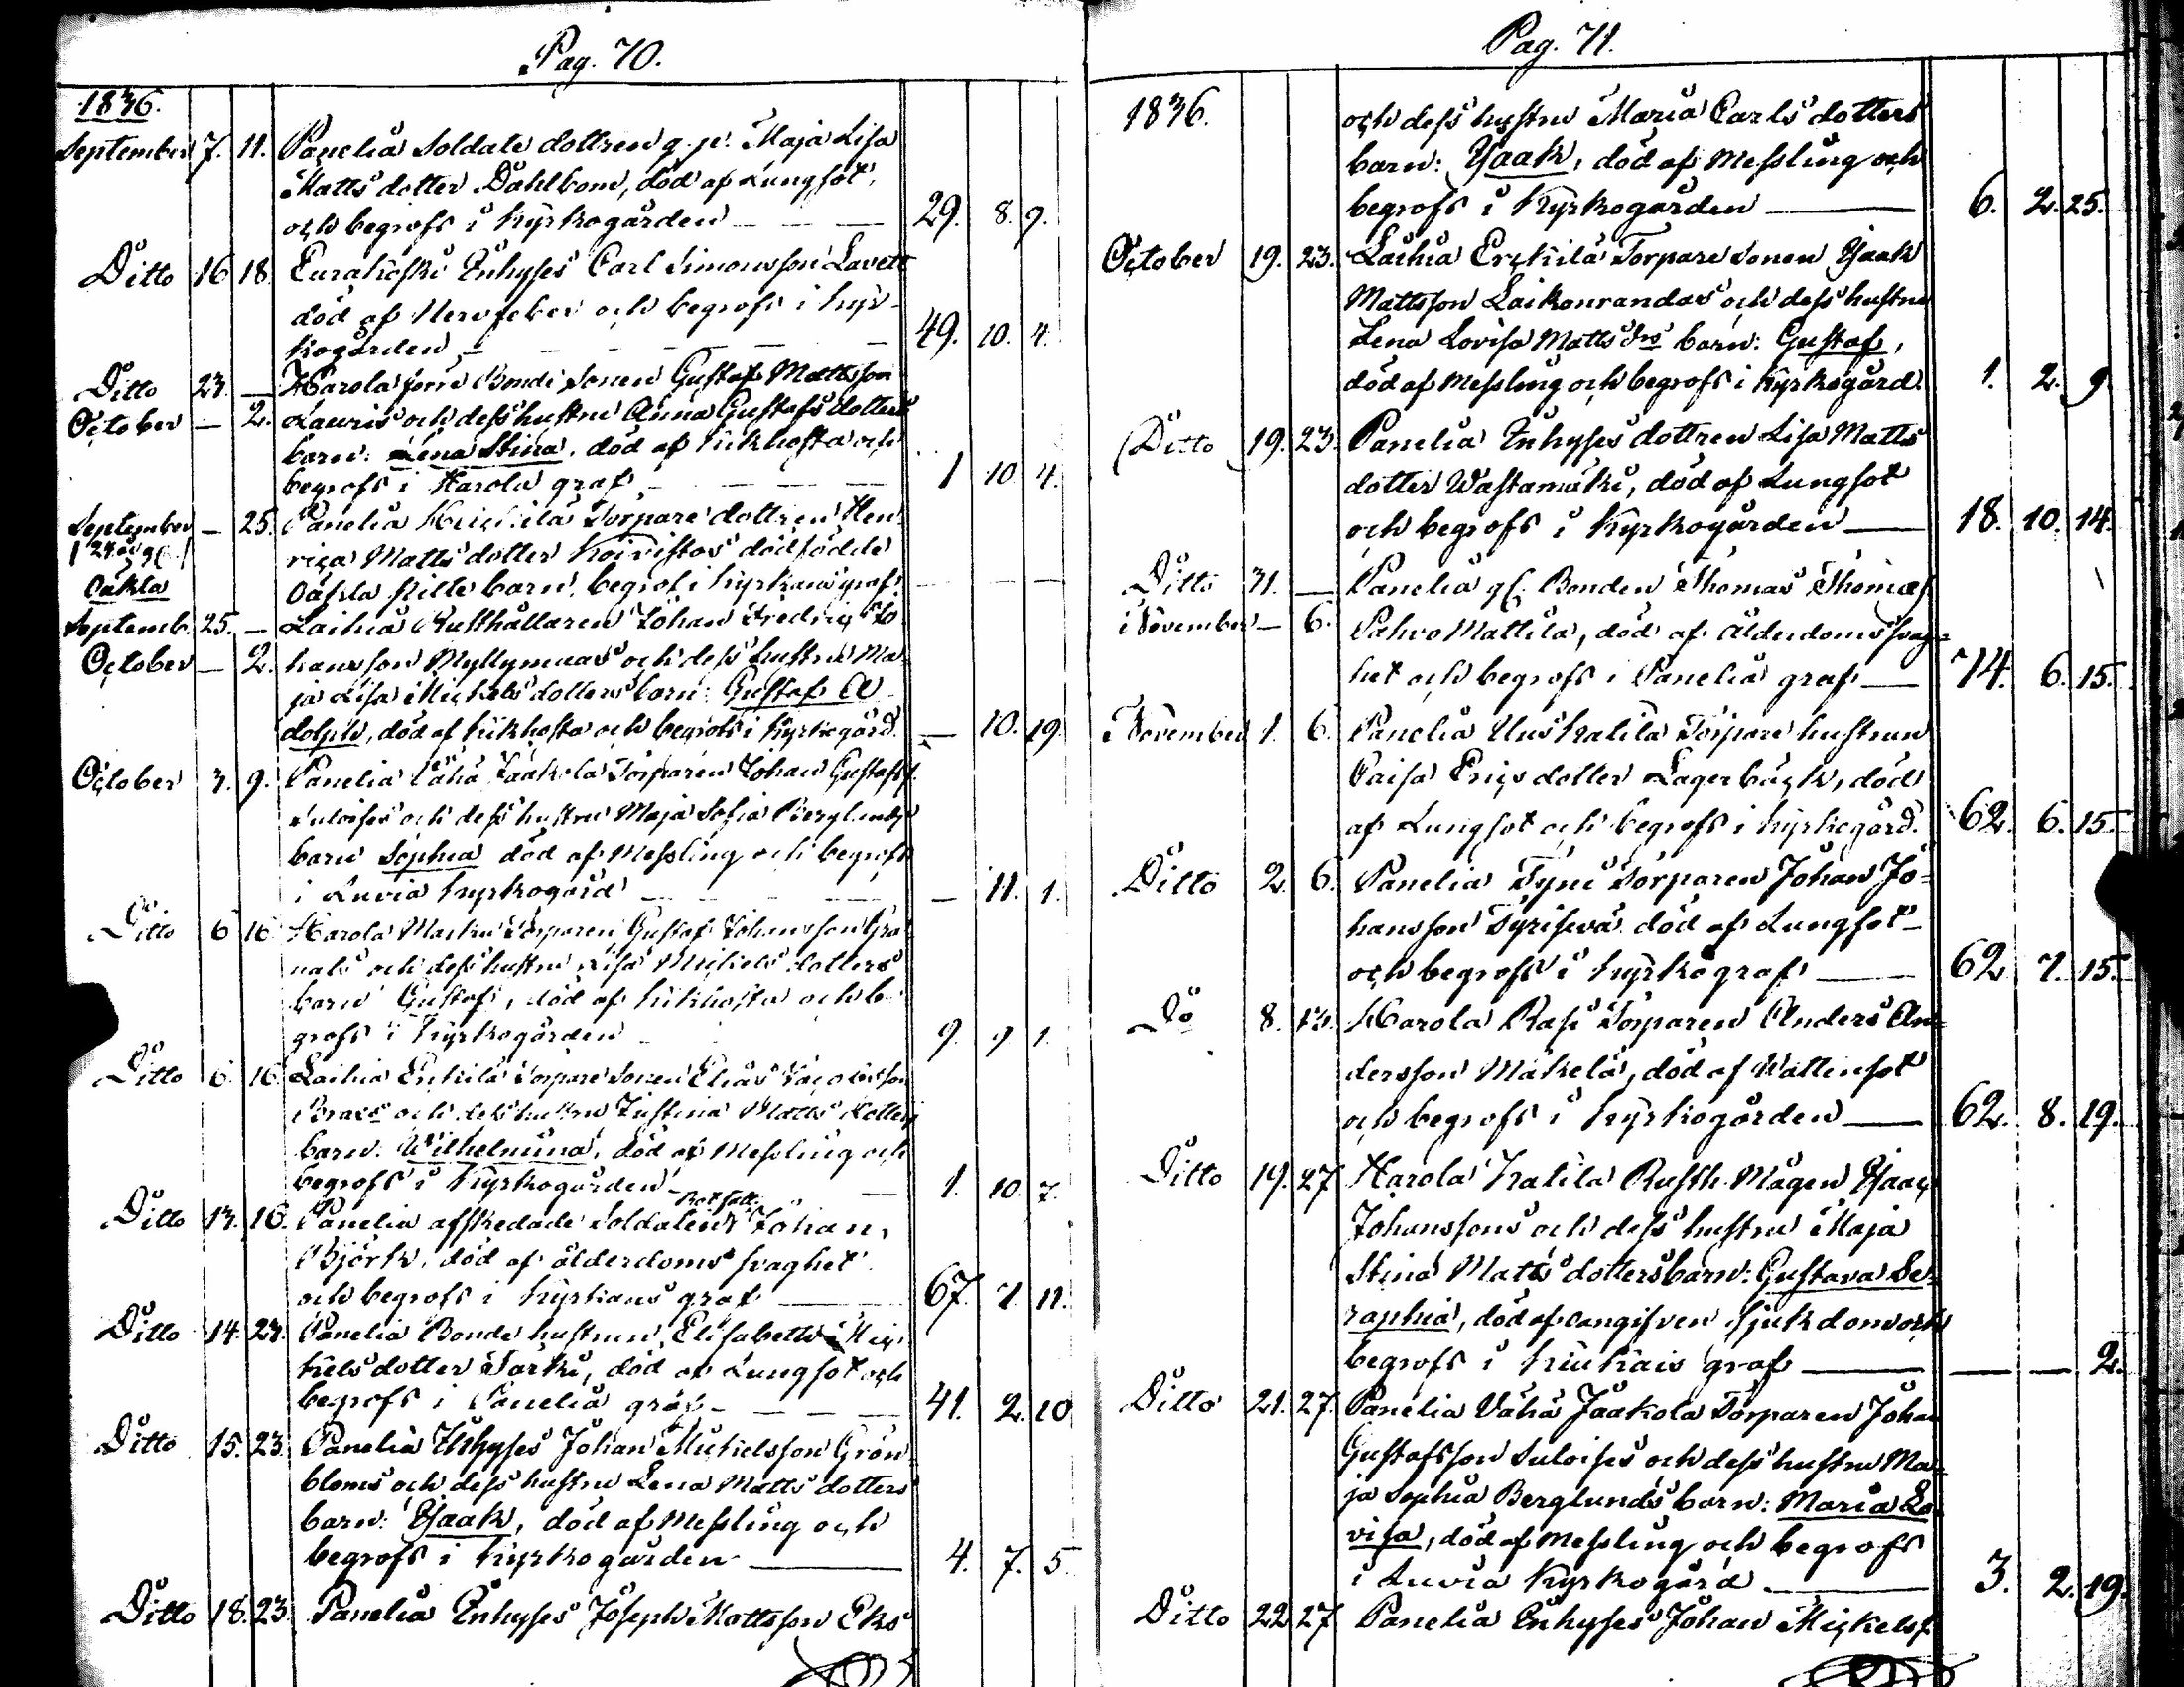 Pag. 70.
1836.
September 7. 11. Panelia Soldate dottren g. p. Maja Lisa
Matts dotter Dahlbom, död af Lungsot,
och begrofs i Kyrkogården 29. 8. 9.
Ditto 16 18. Eurakoski Inhyses Carl Simonsson Lavett
död af Nervfeber och begrofs i kyr-
kogården 49. 10. 4.
Ditto 23. — Harola Bonde Sonen Gustaf Mattsson
October — 2. Lauris och dess hustru Anna Gustafs dotters
barn: Lena Stina, död af kikhosta och
begrofs i Harola graf 1 10 4.
September — 25. Panelia Torpare dottren Hen-
rica Matts dotter Koivistos dödfödde
Oäkta Oäkta Pille barn, begrof i kyrkans graf.
Septemb. 25. — Laihia Rusthållaren Johan Fredric Jo-
October — 2. hansson Myllymaas och dess hustru Ma-
ja Lisa Michels dotters barn: Gustaf A-
dolph, död af kikhosta och begrofs i Kyrkogård. — 10. 19.
October 3. 9. Panelia Vähä Jaakola Torparen Johan Gustafss.
Suloises och dess hustru Maja Sofia Berglunds
barn Sophia död af Messling och begrofs
i Luvia kyrkogård — 11. 1.
Ditto 6 16 Harola Torparen Gustaf Johansson
och dess hustru Lisa Michels dotters
barn Gustaf, död af kikhosta och be-
grofs i Kyrkogården 9. 9 1.
Ditto 6. 16. Laihia Erkkilä Torpare Sonen Elias Jacobsson
och dess hustru Justina Matts dotters
barn: Wilhelmina, död af Messling och
begrofs i Kyrkogården 1. 10. 7.
Ditto 13. 16. Panelia afskedade Soldaten Johan
Björk, död af ålderdoms svaghet
och begrofs i kyrkans graf 67. 7. 11.
Ditto 14. 23. Panelia Bonde hustrun Elisabeth Mic-
kels dotter Sarki, död af Lungsot och
begrofs i Panelia graf 41. 2. 10
Ditto 15. 23. Panelia Inhyses Johan Mickelsson Grön-
bloms och dess hustru Lena Matts dotters
barn: Ysaak, död af Messling och
begrofs i kyrkogården 4. 7. 5.
Ditto 18. 23. Panelia Inhyses Joseph Mattsson Eks
Pag. 71.
1836. och dess hustru Maria Carls dotters
barn: Ysaak, död af Messling och
begrofs i Kyrkogården 6. 2. 25.
October 19. 23. Laihia Erckilä Torpare Sonen Ysaak
Mattsson Laikonrandas och dess hustru
Lena Lovisa Matts drs barn: Gustaf,
död af Messling och begrofs i kyrkogård. 1. 2. 9
Ditto 19. 23. Panelia Inhyses dottren Lisa Matts
dotter Wästamäki, död af Lungsot
och begrofs i Kyrkogården 18. 10. 14.
Ditto 31. — Panelia gl. Bonden Thomas Thomass.
November — 6. Pahvo Mattila, död af ålderdoms svag-
het och begrofs i Panelia graf 74. 6. 15.
November 1. 6. Panelia Uuskatila Torpare hustrun
Caisa Erics dotter Lagerbäck, död
af Lungsot och begrofs i kyrkogård. 62. 6. 15.
Ditto 2. 6. Panelia Tyni Torparen Johan Jo-
hansson Tyrisevä död af Lungsot
och begrofs i kyrko graf 62 7. 15.
Do 8. 13. Harola Rasi Torparen Anders An-
dersson Mäkelä, död af Wattensot
och begrofs i kyrkogården 62. 8. 19.
Ditto 19. 27 Harola Katila Rusth. Mågen Ysaac
Johanssons och dess hustru Maja
Stina Matts dotters barn: Gustava Se-
raphia, död af oangifven sjukdom och
begrofs i Kiukais graf — — 2.
Ditto 21. 27. Panelia Vähä Jaakola Torparen Johan
Gustafsson Suloises och dess hustru Ma-
ja Sophia Berglunds barn: Maria Lo-
visa, död af Messling och begrofs
i Luvia Kyrkogård 3. 2. 19.
Ditto 22 27 Panelia Inhyses Johan Mickelss.